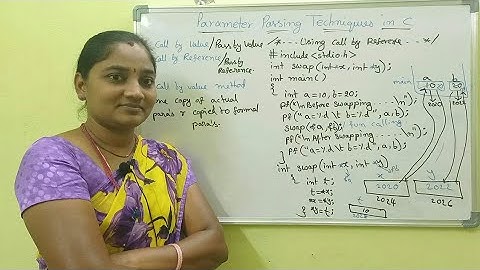 Parameter Passing Techniques in C
Call by Value/Pass by Value
Call by Reference/Pass by Reference.
Call by value method
copy of actual
para's r copied to formal
para's.
/*--- Using Call by Reference ---*/
# include <stdio.h>
int swap(int *x, int *y);
int main()
{
int a=10, b=20;
pf("\n Before Swapping ---- \n");
pf("a=%d \t b=%d", a, b);
swap(&a, &b);
pf("\n After Swapping ---- \n");
pf("a=%d \t b=%d", a, b);
}
int swap(int *x, int *y)
{ int t;
t=*x;
*x=*y;
*y=t;
}
main
a
b
20
x
y
2020
2022
2024
2026
t
10